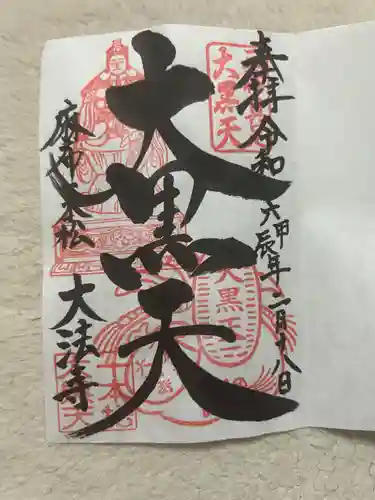 奉拝 令和六甲辰年二月十八日
大黒天
麻布一本松
大法寺
大黒天
大黒天
一本松